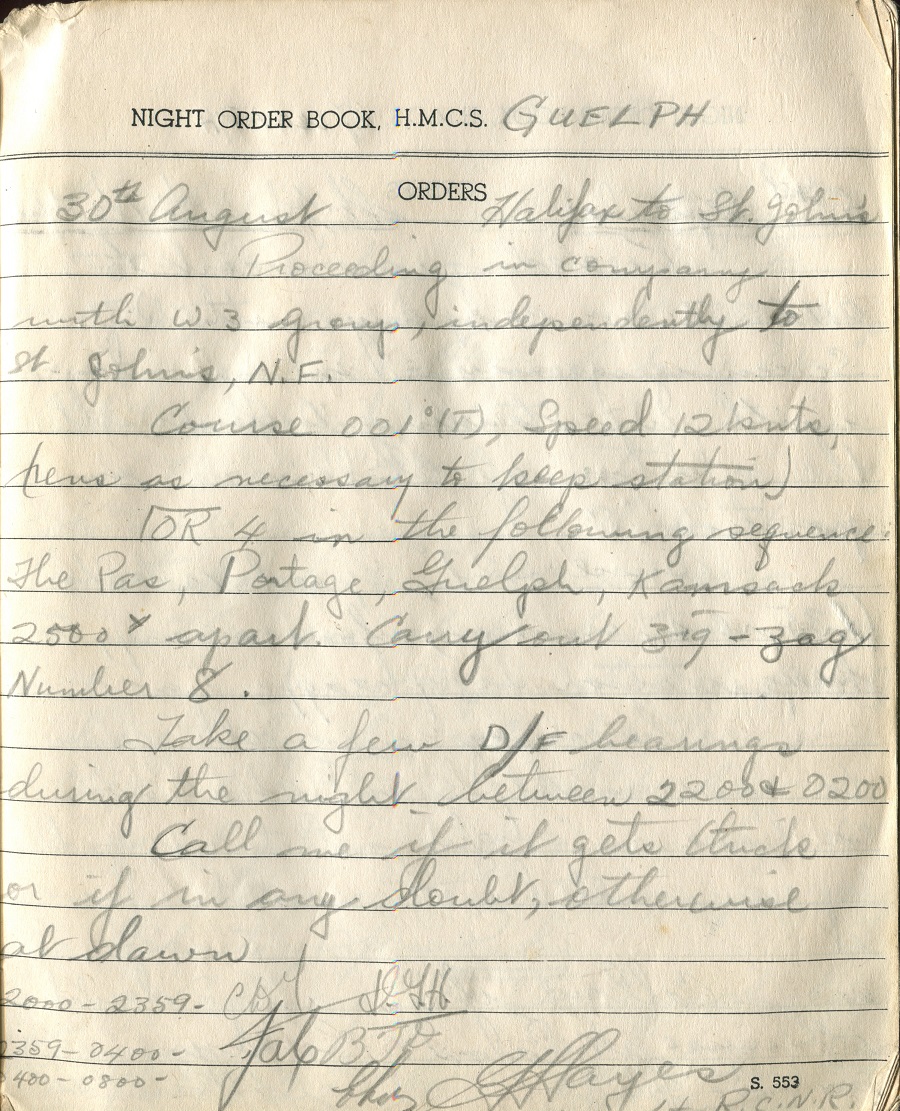 NIGHT ORDER BOOK, H.M.C.S. GUELPH
ORDERS
30th August Halifax to St. John's
Proceeding in company
with W.3 group, independently to
St. John's, N.F.
Course 001°(T), Speed 12 knts,
(revs as necessary to keep station)
OR 4 in the following sequence:
The Pas, Portage, Guelph, Kamsack
2500 x apart. Carry out zig-zag
Number 8.
Take a few D/F bearings
during the night between 2200 & 0200
Call me if it gets thick
or if in any doubt, otherwise
at dawn
2000-2359-
2359-0400-
0400-0800- Hayes
S. 553
Lt R.C.N.R.